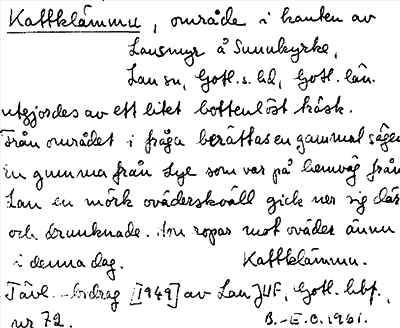 Kattklämmu, område i kanten av
Lausmyr å Sunnkyrke,
Lau sn, Gotl. s. hd, Gotl. län.
utgjordes av ett litet bottenlöst käsk.
Från området i fråga berättas en gammal sägen
En gumma från Lye som var på hemväg från
Lau en mörk oväderskväll gick ner sig där
och drunknade. Hon ropar mot oväder ännu
i denna dag. Kattklämmu.
Tävl. bidrag [1949] av Lau JUF, Gotl. hbf.
nr 72. B.-E.C. 1961.